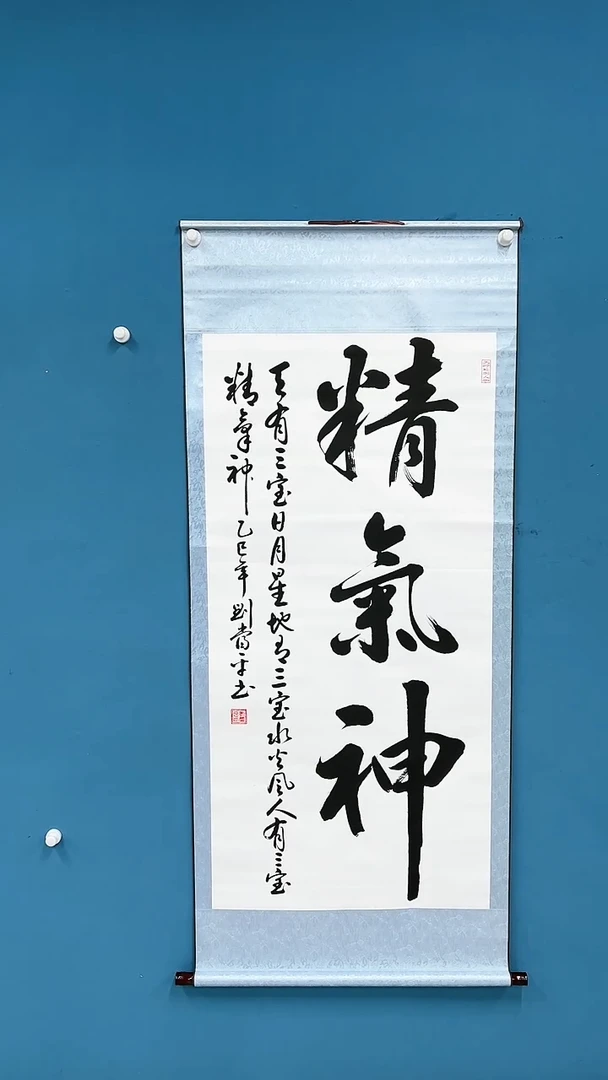 精氣神
天有三宝日月星地有三宝水火风人有三宝
精氣神 乙巳年 刘常平书